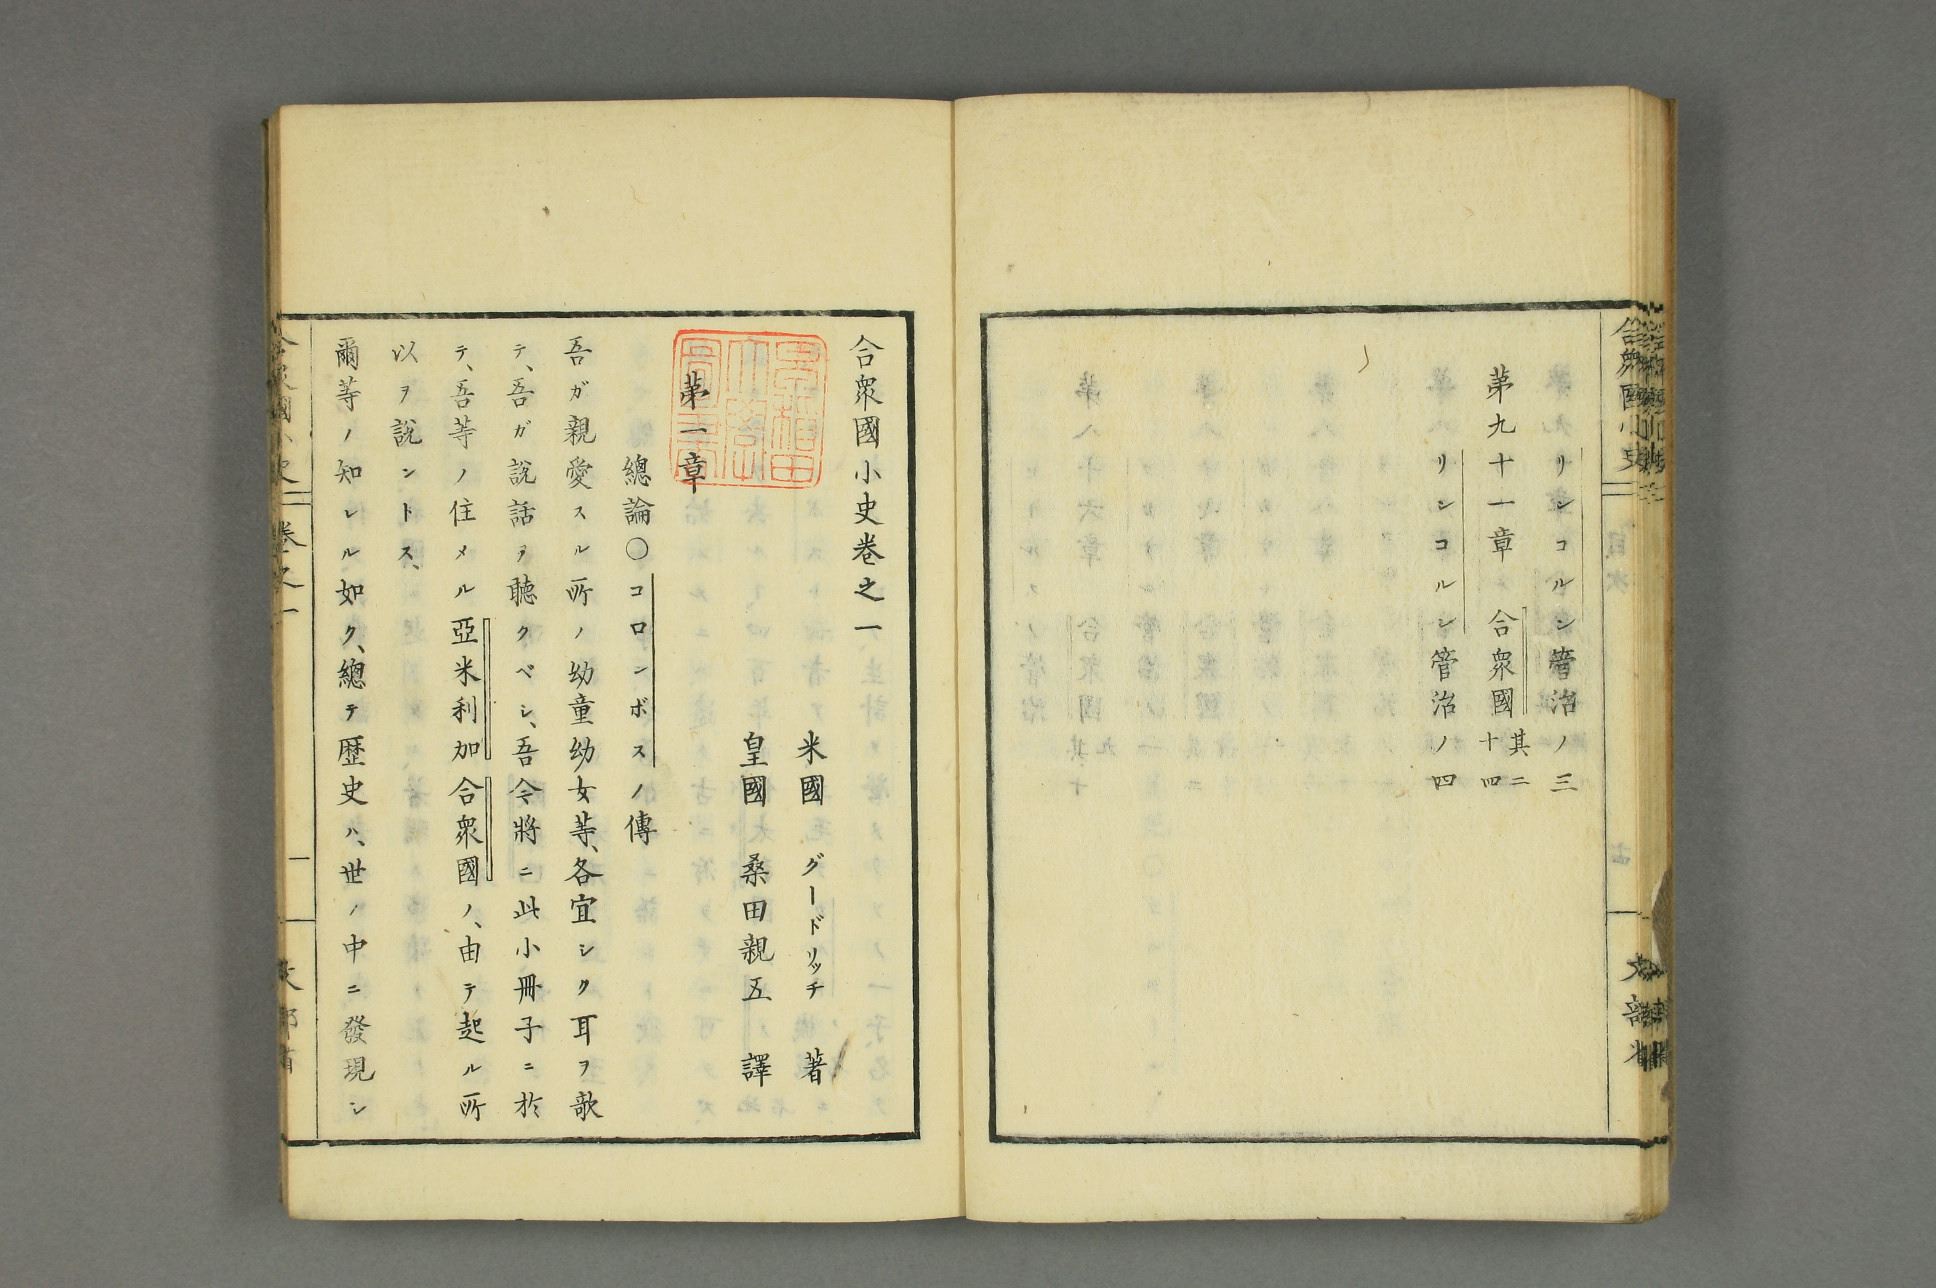 リンコルン管治ノ三
第九十一章 合衆國其二十四
リンコルン管治ノ四
合衆國小史
目次
文部省
合衆國小史卷之一
米國 グードリッチ 著
皇國 桑田親五 譯
第一章
總論〇コロンボスノ傳
吾ガ親愛スル所ノ幼童幼女等、各宜シク耳ヲ歌
テ、吾ガ説話ヲ聽クベシ、吾今將ニ此小冊子ニ於
テ、吾等ノ住メル亞米利加合衆國ノ、由テ起ル所
以ヲ説ントス、
爾等ノ知レル如ク、總テ歴史ハ、世ノ中ニ發現シ
合衆國小史
卷之一
一
文部省